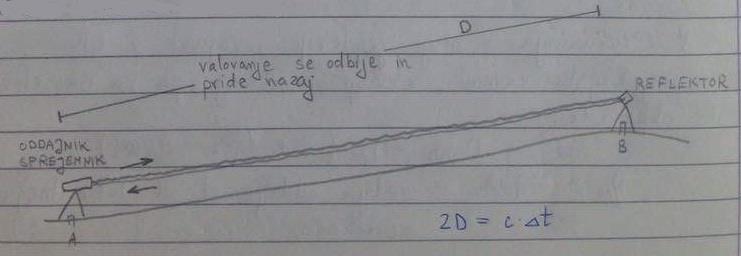 D
valovanje se odbije in
pride nazaj
REFLEKTOR
ODDAJNIK
SPREJEMNIK
B
A
2D = c·Δt